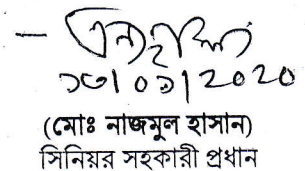 ১৩/০১/২০২০
(মোঃ নাজমুল হাসান)
সিনিয়র সহকারী প্রধান